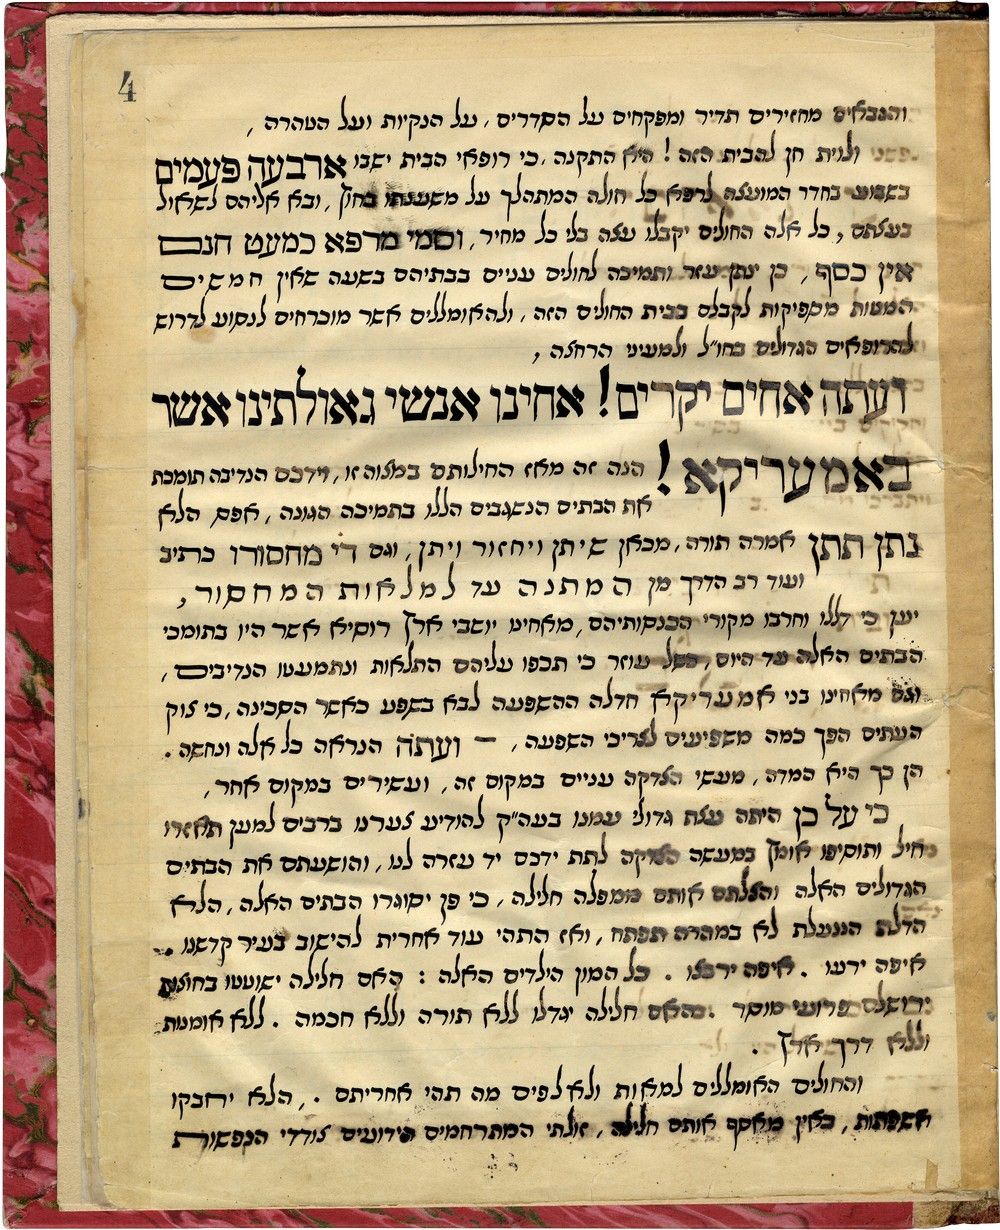 4
והגבאים מחזירים תדיר ומפקחים על הסדרים, על הנקיות ועל הטהרה,
ולוית חן להבית הזה! היא התקנה, כי רופאי הבית ישבו ארבעה פעמים
בשבוע בחדר המועצה לרפא כל חולה המתהלך על משענתו בחוץ, ובא אליהם לשאול
בעצתם, כל אלה החולים יקבלו עצה בלי כל מחיר, וסמי מרפא כמעט חנם
אין כסף, כן ינתן עזר ותמיכה לחולים עניים בבתיהם בשעה שאין חמשים
המטות מספיקות לקבלם בבית החולים הזה, ולהאומללים אשר מוכרחים לנסוע לדרוש
להרופאים הגדולים בחו״ל ולמעיני הרחצה,
ועתה אחים יקרים! אחינו אנשי גאולתינו אשר
באמעריקא! הנה זה מאז החילותם במצוה זו, וידכם הנדיבה תומכת
את הבתים הנשגבים הללו בתמיכה הגונה, אפס, הלא
נתן תתן אמרה תורה, מכאן שיתן ויחזור ויתן, וגם די מחסורו כתיב
ועוד רב הדרך מן המתנה עד למלאות המחסור,
יען כי דללו וחרבו מקורי הכנסותיהם, מאחינו יושבי ארץ רוסיא אשר היו בתומכי
הבתים האלה עד היום, כשל עוזר כי תכפו עליהם התלאות ונתמעטו הנדיבים,
וגם מאחינו בני אמעריקא חדלה ההשפעה לבא בשפע כאשר הסכינה, כי צוק
העתים הפך כמה משפיעים לצריכי השפעה, – ועתה הנראה כל אלה ונחשה.
הן כך היא המדה, מעשי הצדקה עניים במקום זה, ועשירים במקום אחר,
כי על כן היתה עצת גדולי עמנו בעה״ק להודיע צערנו ברבים למען תאזרו
חיל ותוסיפו אומץ במעשה הצדקה לתת ידכם יד עזרה לנו, והושעתם את הבתים
הגדולים האלה והצלתם אותם ממפלה חלילה, כי פן יסוגרו הבתים האלה, הלא
הדלת הננעלת לא במהרה תפתח, ואז התהי עוד אחרית להישוב בעיר קדשנו.
איפה ירעו. איפה ירבצו. כל המון הילדים האלה: האם חלילה ישוטטו בחוצות
ירושלם פרועי מוסר. והאם חלילה יגדלו ללא תורה וללא חכמה. ללא אומנות
וללא דרך ארץ.
והחולים האומללים למאות ולאלפים מה תהי אחריתם., הלא יחבקו
אשפתות, באין מאסף אותם חלילה, זולתי המתרחמים הידועים צודדי הנפשות